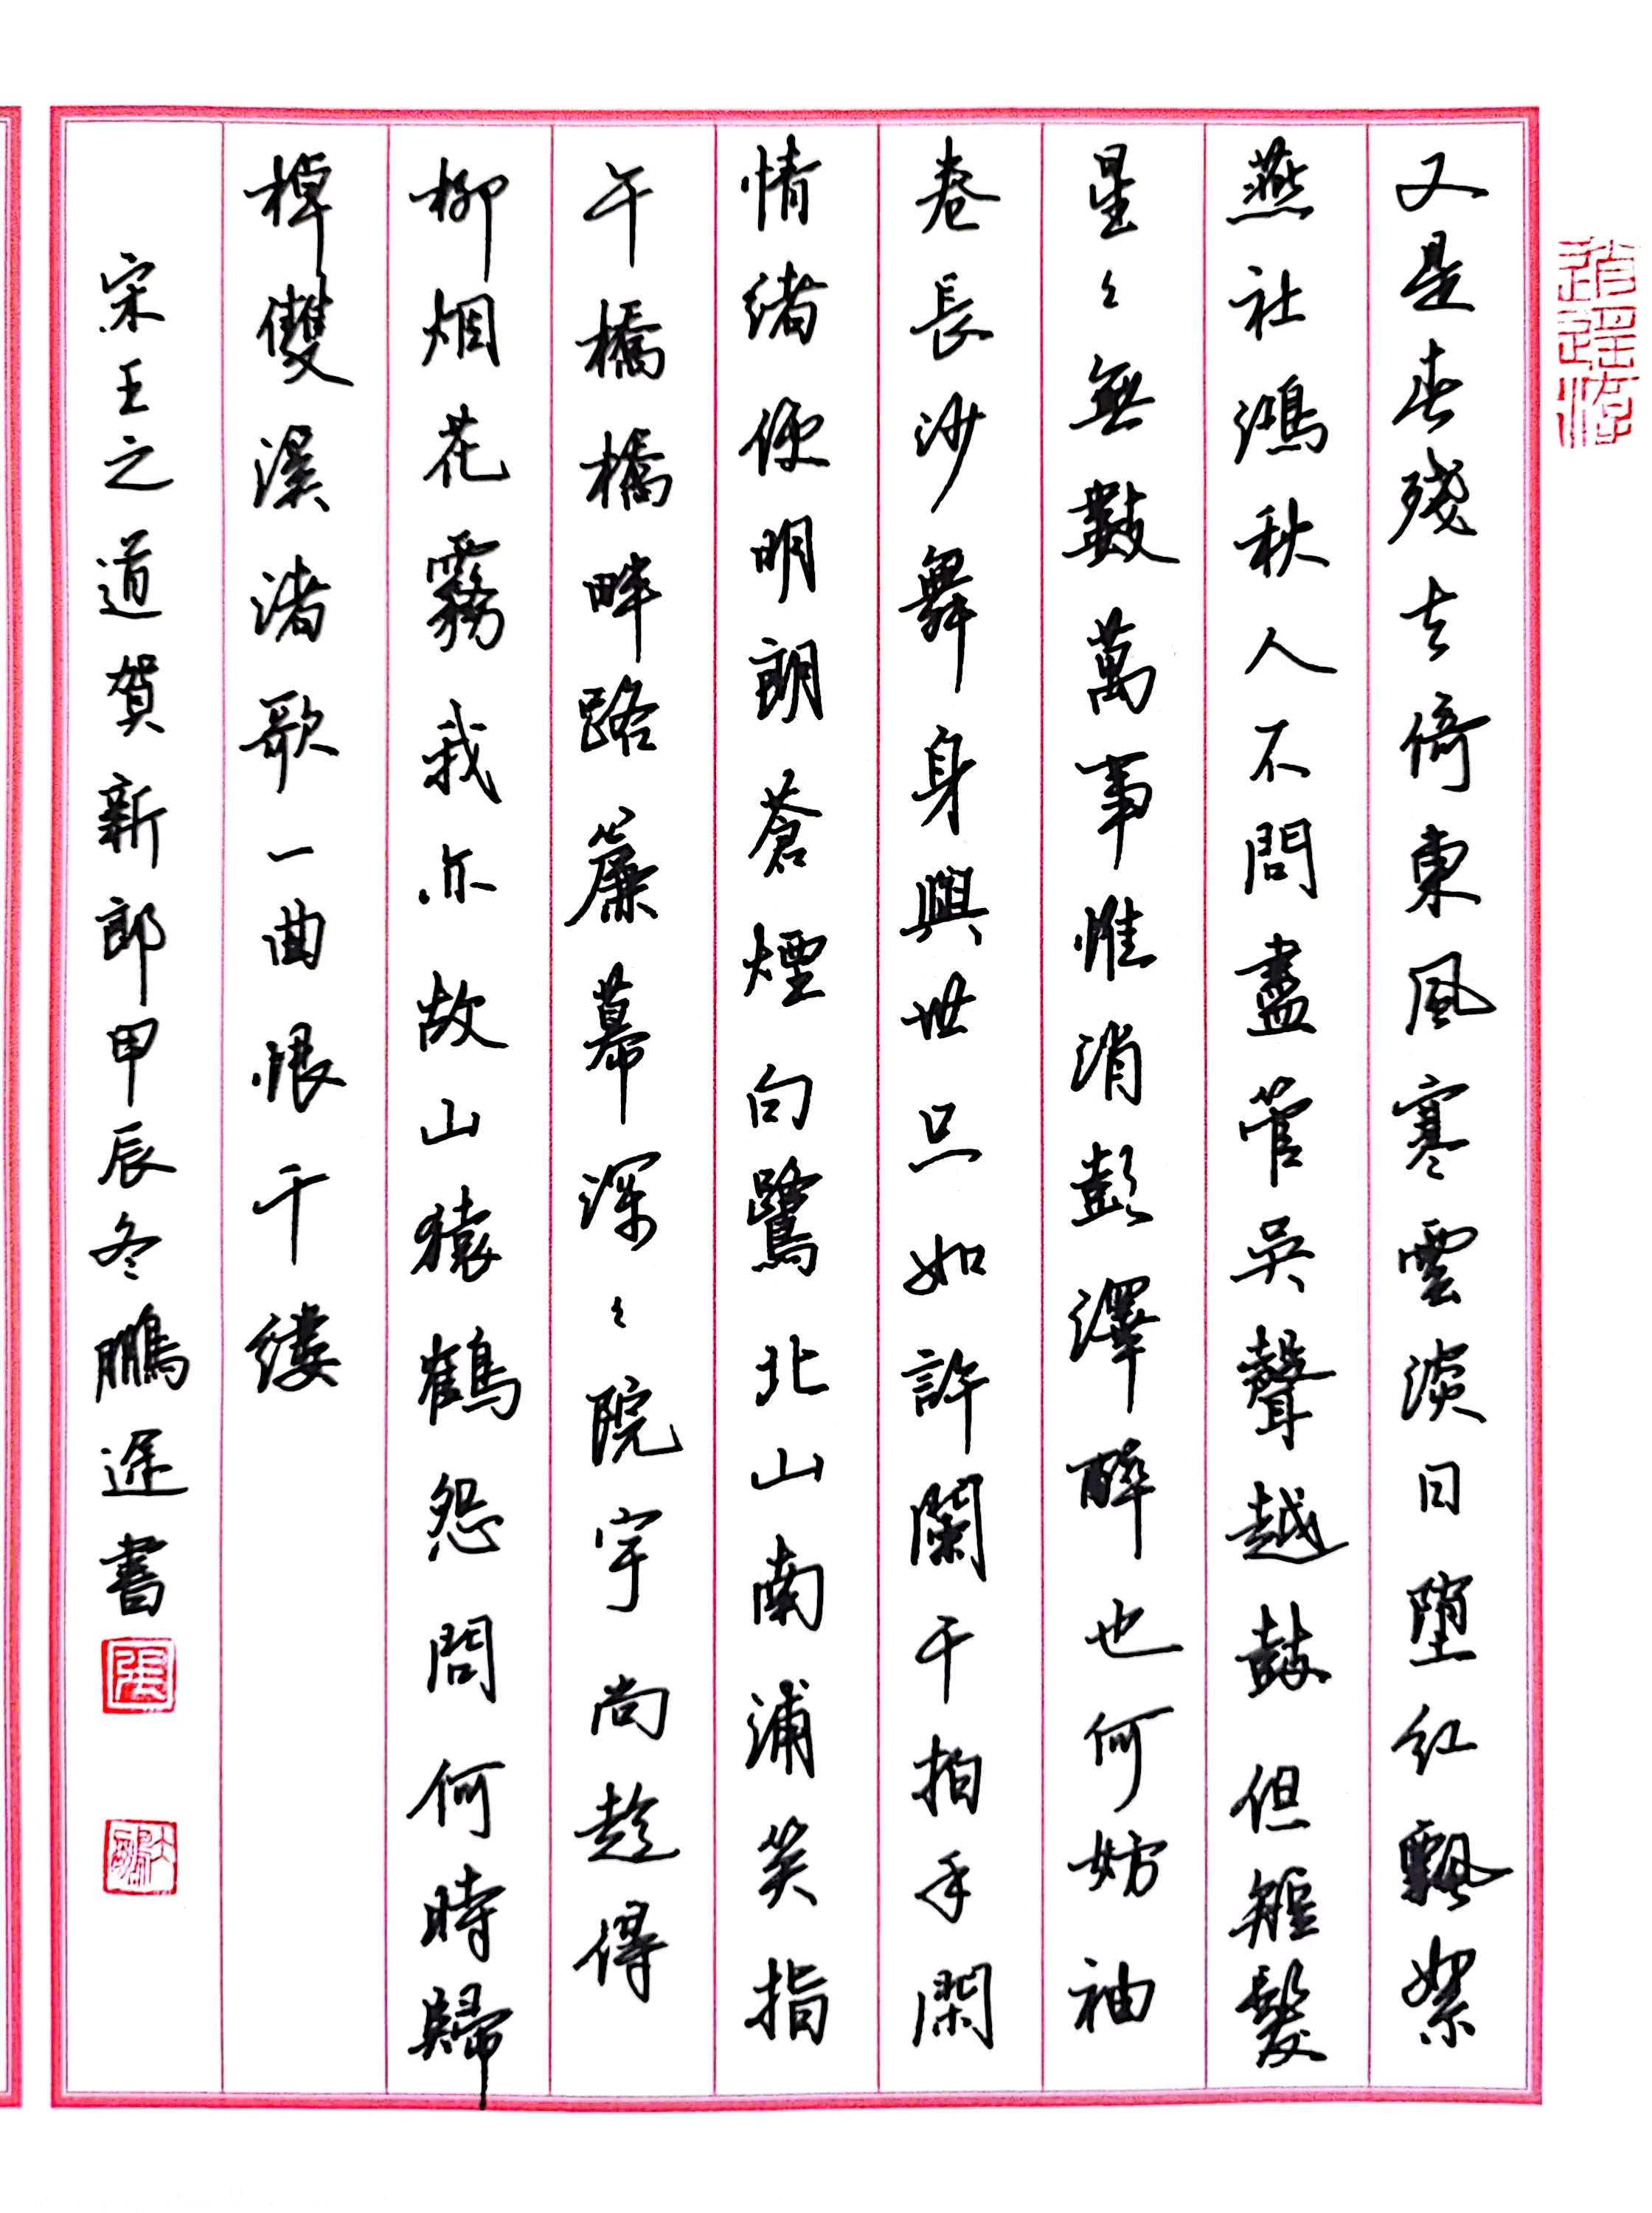 又是春殘去倚東風寒雲淡日堕红飄絮
燕社鴻秋人不問盡管吳聲越鼓但短髮
星〻無數萬事惟消彭澤醉也何妨袖
卷長沙舞身與世只如許闌干拍手閑
情緒便明朗蒼煙句鷺北山南浦笑指
午橋橋畔路簾幕深〻院宇尚趁得
柳烟花霧我亦故山猿鶴怨問何時歸
棹雙溪渚歌一曲恨千缕
宋王之道賀新郎甲辰冬鵬逕書
逍遥游
張